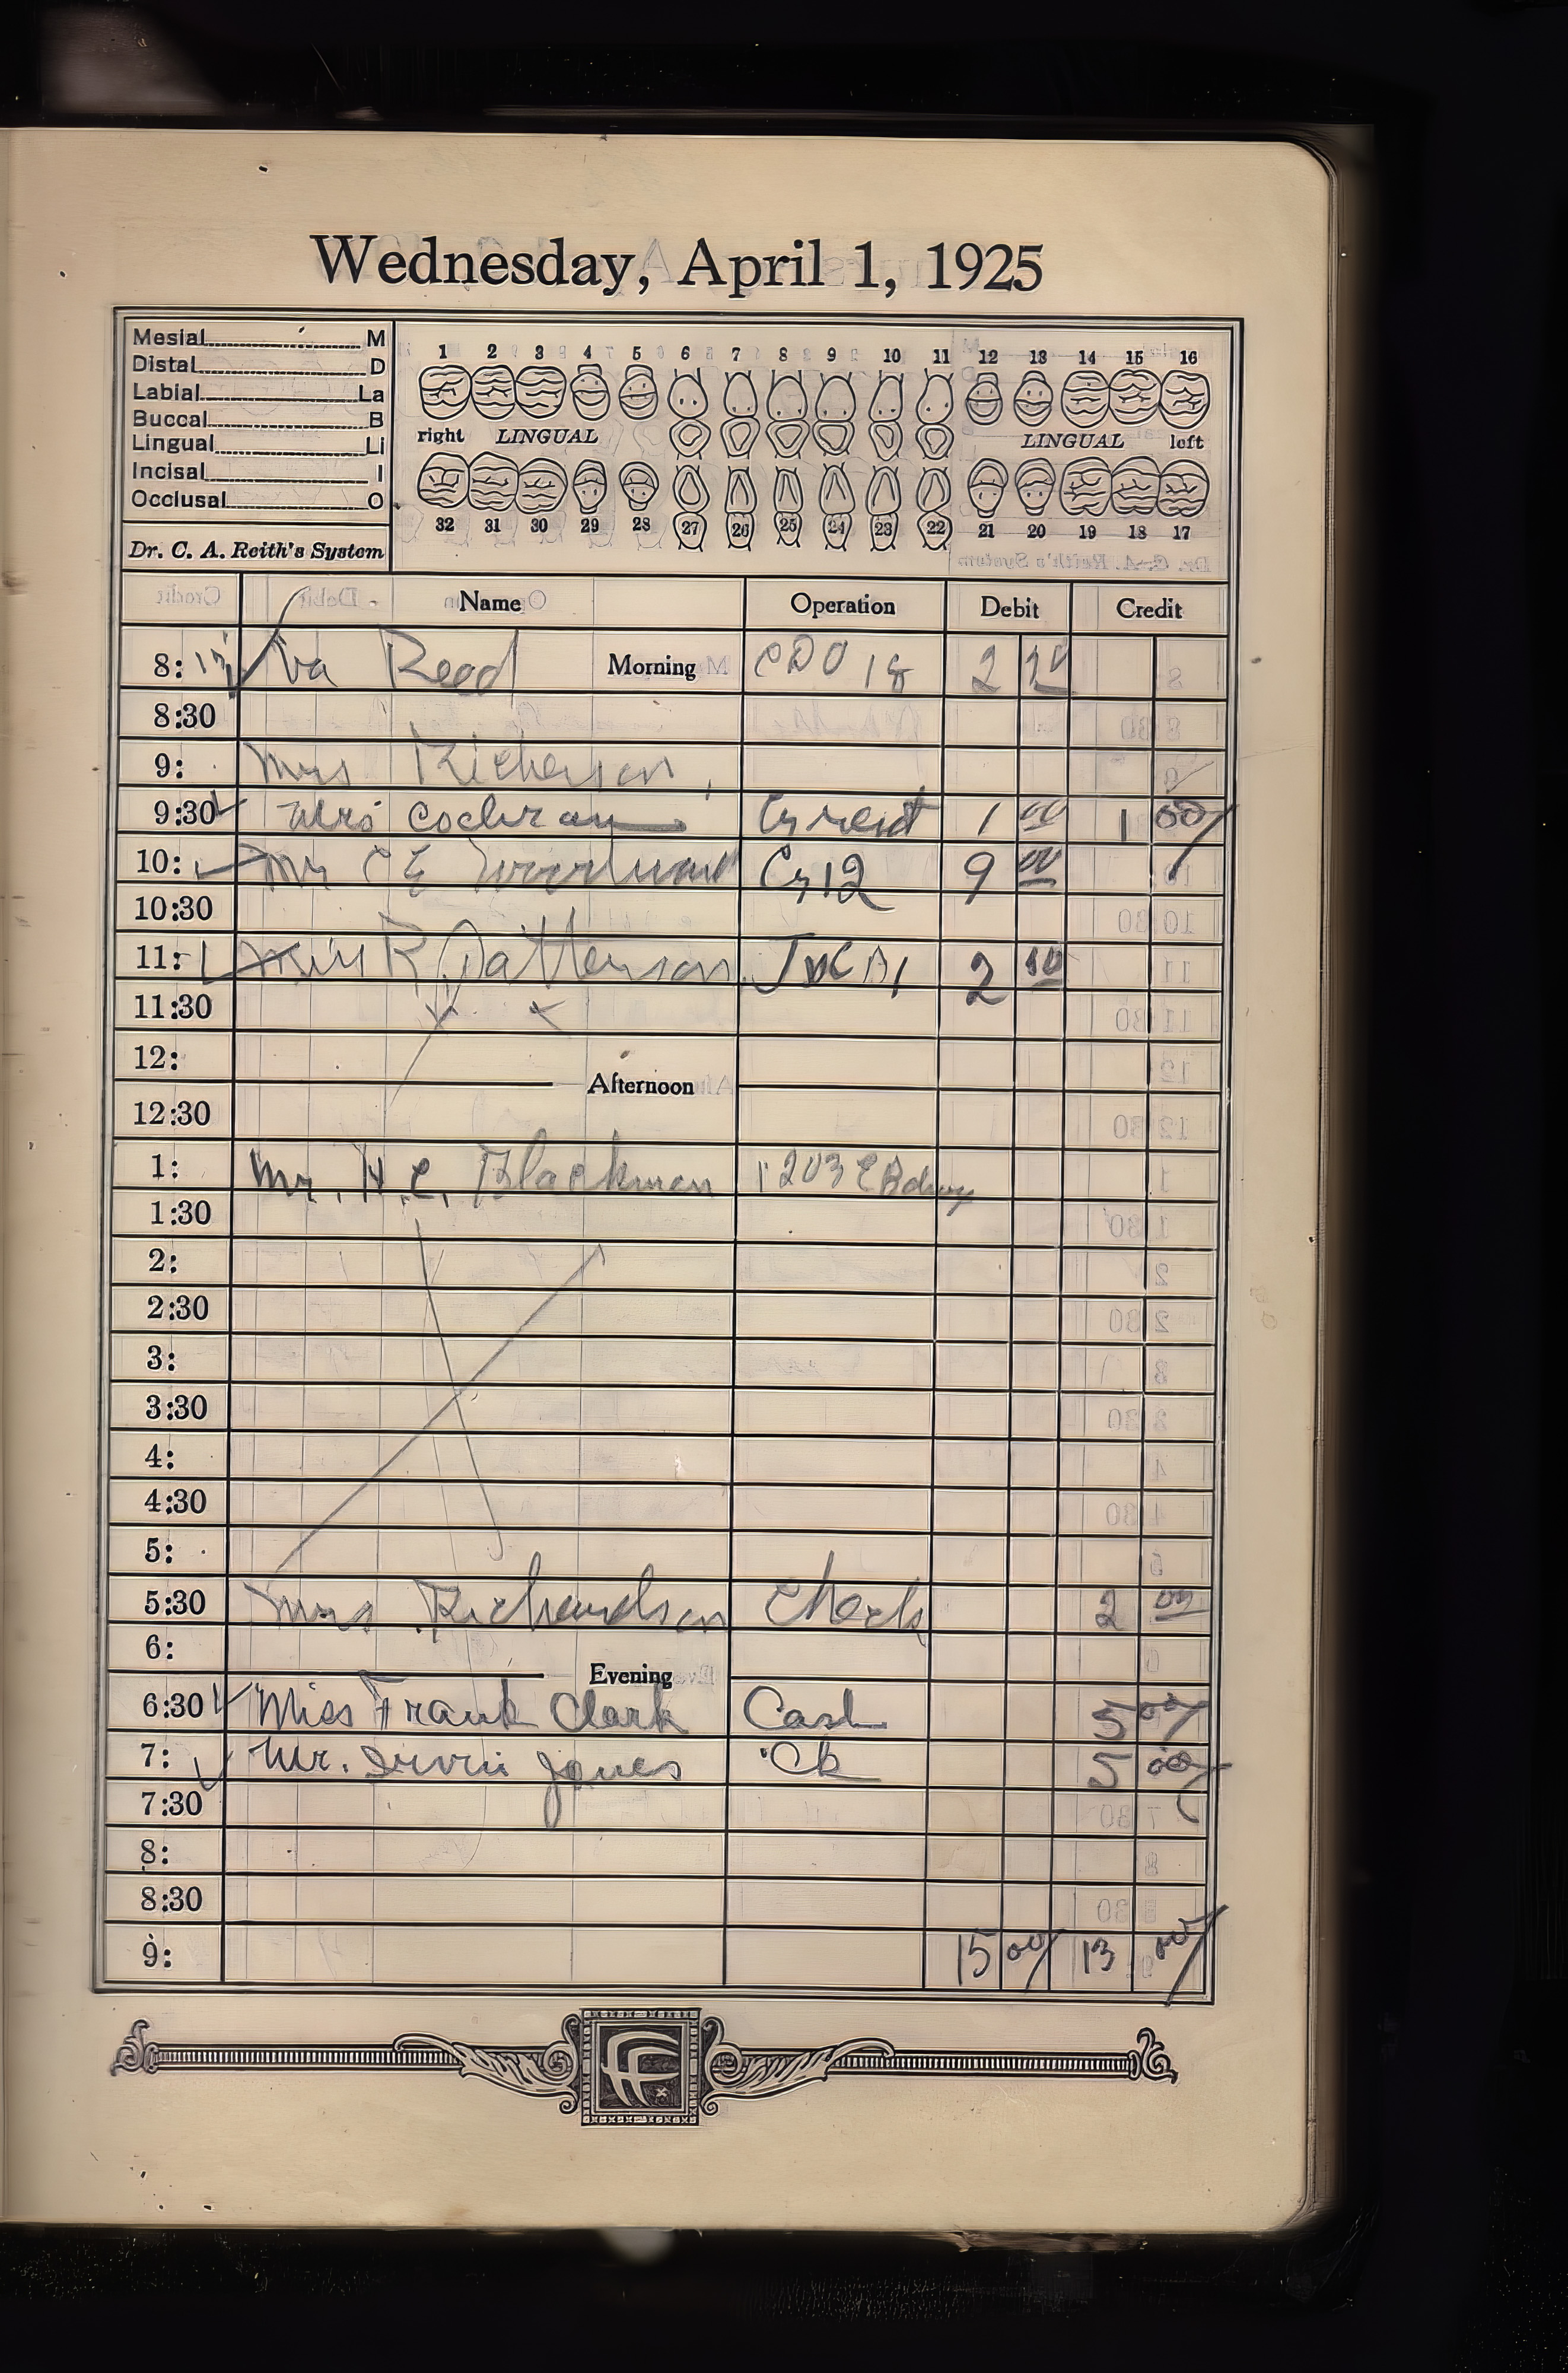 Wednesday, April 1, 1925
Mesial M
Distal D
Labial La
Buccal B
Lingual Li
Incisal I
Occlusal O
Dr. C. A. Reith's System
1 2 3 4 5 6 7 8 9 10 11 12 13 14 15 16
right LINGUAL LINGUAL left
32 31 30 29 28 27 26 25 24 23 22 21 20 19 18 17
Name Operation Debit Credit
8: Reed Morning 18 2
8:30
9: Mrs Richerson
9:30 Mrs Cochran 1 00 1 00
10: Mr C E Cr 12 9 00
10:30
11: R Patterson 2
11:30
12:
Afternoon
12:30
1: Mr. H. C. Blackman 1203 E Bdway
1:30
2:
2:30
3:
3:30
4:
4:30
5:
5:30 Mrs Richardson Check 2 00
6:
Evening
6:30 Miss Frank Clark Cash 5 00
7: Mr. Irvin Jones Ck 5 00
7:30
8:
8:30
9: 15 00 13 00